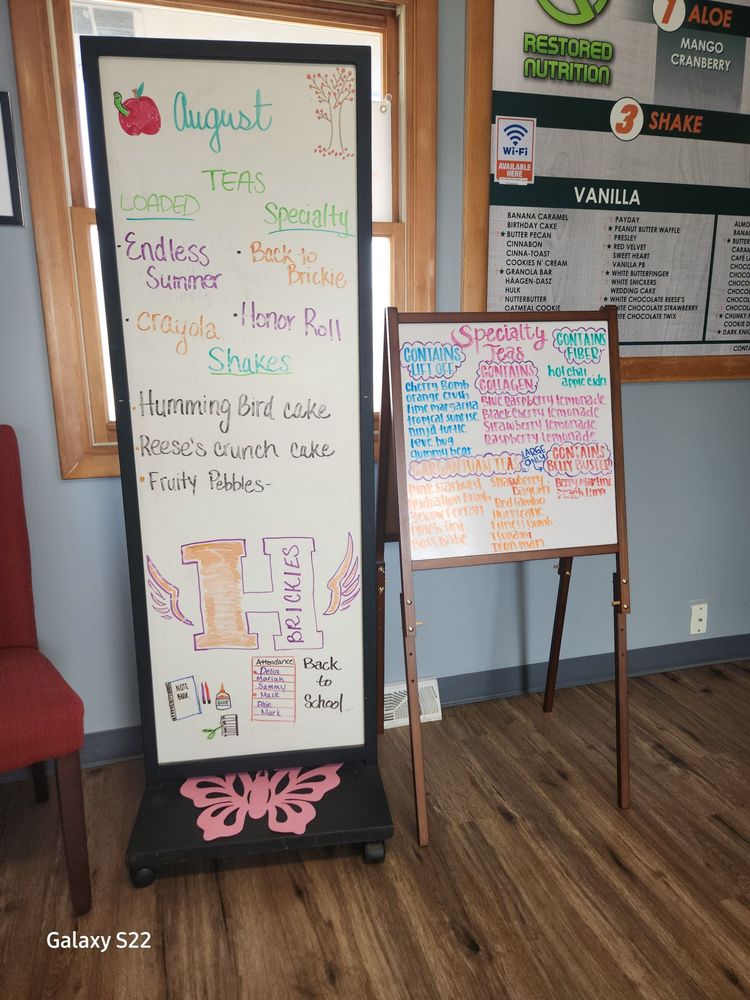 August
TEAS
LOADED
Specialty
Endless
Summer
Back to
Brickie
crayola
Honor Roll
Shakes
Humming Bird cake
Reese's crunch cake
Fruity Pebbles-
H
BRICKIES
NOTE
BOOK
GLUE
Attendance
Delia
Mariah
Sammy
Mark
Back
to
School...
Specialty
Teas
CONTAINS
LIFT OFF
cherry Bomb
orange crush
lime margarita
tropical sunrise
ninja turtle
love bug
gummy bear
CONTAINS
COLLAGEN
Blue Raspberry lemonade
Blackcherry lemonade
Strawberry lemonade
Raspberry lemonade
CONTAINS
FIBER
hot chai
apple cider
GARGANTUAN TEAS
LARGE
ONLY
Pink Starburst
Hydration Bomb
Yellow Ferrari
Peach Joy
Boss Babe
Strawberry
Daquiri
Red lambo
Hurricane
Fitness Bomb
Tsunami
Iron man
CONTAINS
BELLY BUSTER
Berry Martini
RESTORED
NUTRITION
1 ALOE
MANGO
CRANBERRY
3 SHAKE
Wi-Fi
AVAILABLE
HERE
VANILLA
BANANA CARAMEL
BIRTHDAY CAKE
BUTTER PECAN
CINNABON
CINNA-TOAST
COOKIES N' CREAM
GRANOLA BAR
HÄAGEN-DASZ
HULK
NUTTERBUTTER
OATMEAL COOKIE
PAYDAY
PEANUT BUTTER WAFFLE
PRESLEY
RED VELVET
SWEET HEART
VANILLA PB
WHITE BUTTERFINGER
WHITE SNICKERS
WEDDING CAKE
WHITE CHOCOLATE REESE'S
WHITE CHOCOLATE STRAWBERRY
WHITE CHOCOLATE TWIX
Galaxy S22